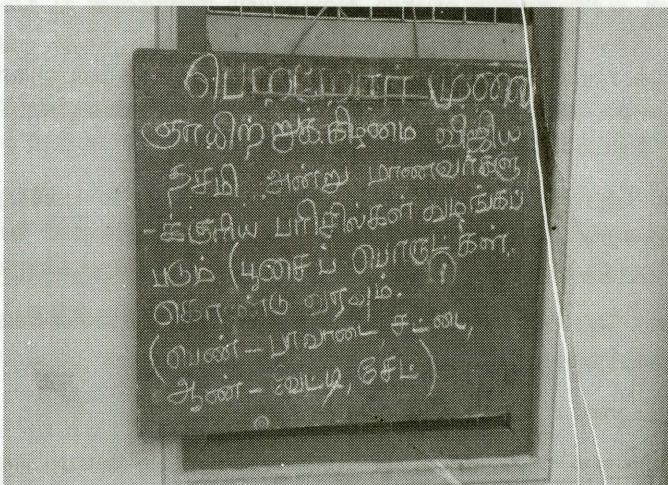 பெற்றோர்
ஞாயிற்றுக்கிழமை விஜிய
தசமி அன்று மாணவர்களு
-க்குரிய பரிசில்கள் வழங்கப்
படும் (பூசைப் பொருட்கள்,
கொண்டு வரவும்.
(பெண் - பாவாடை, சட்டை,
ஆண் - வேட்டி, சேட்)